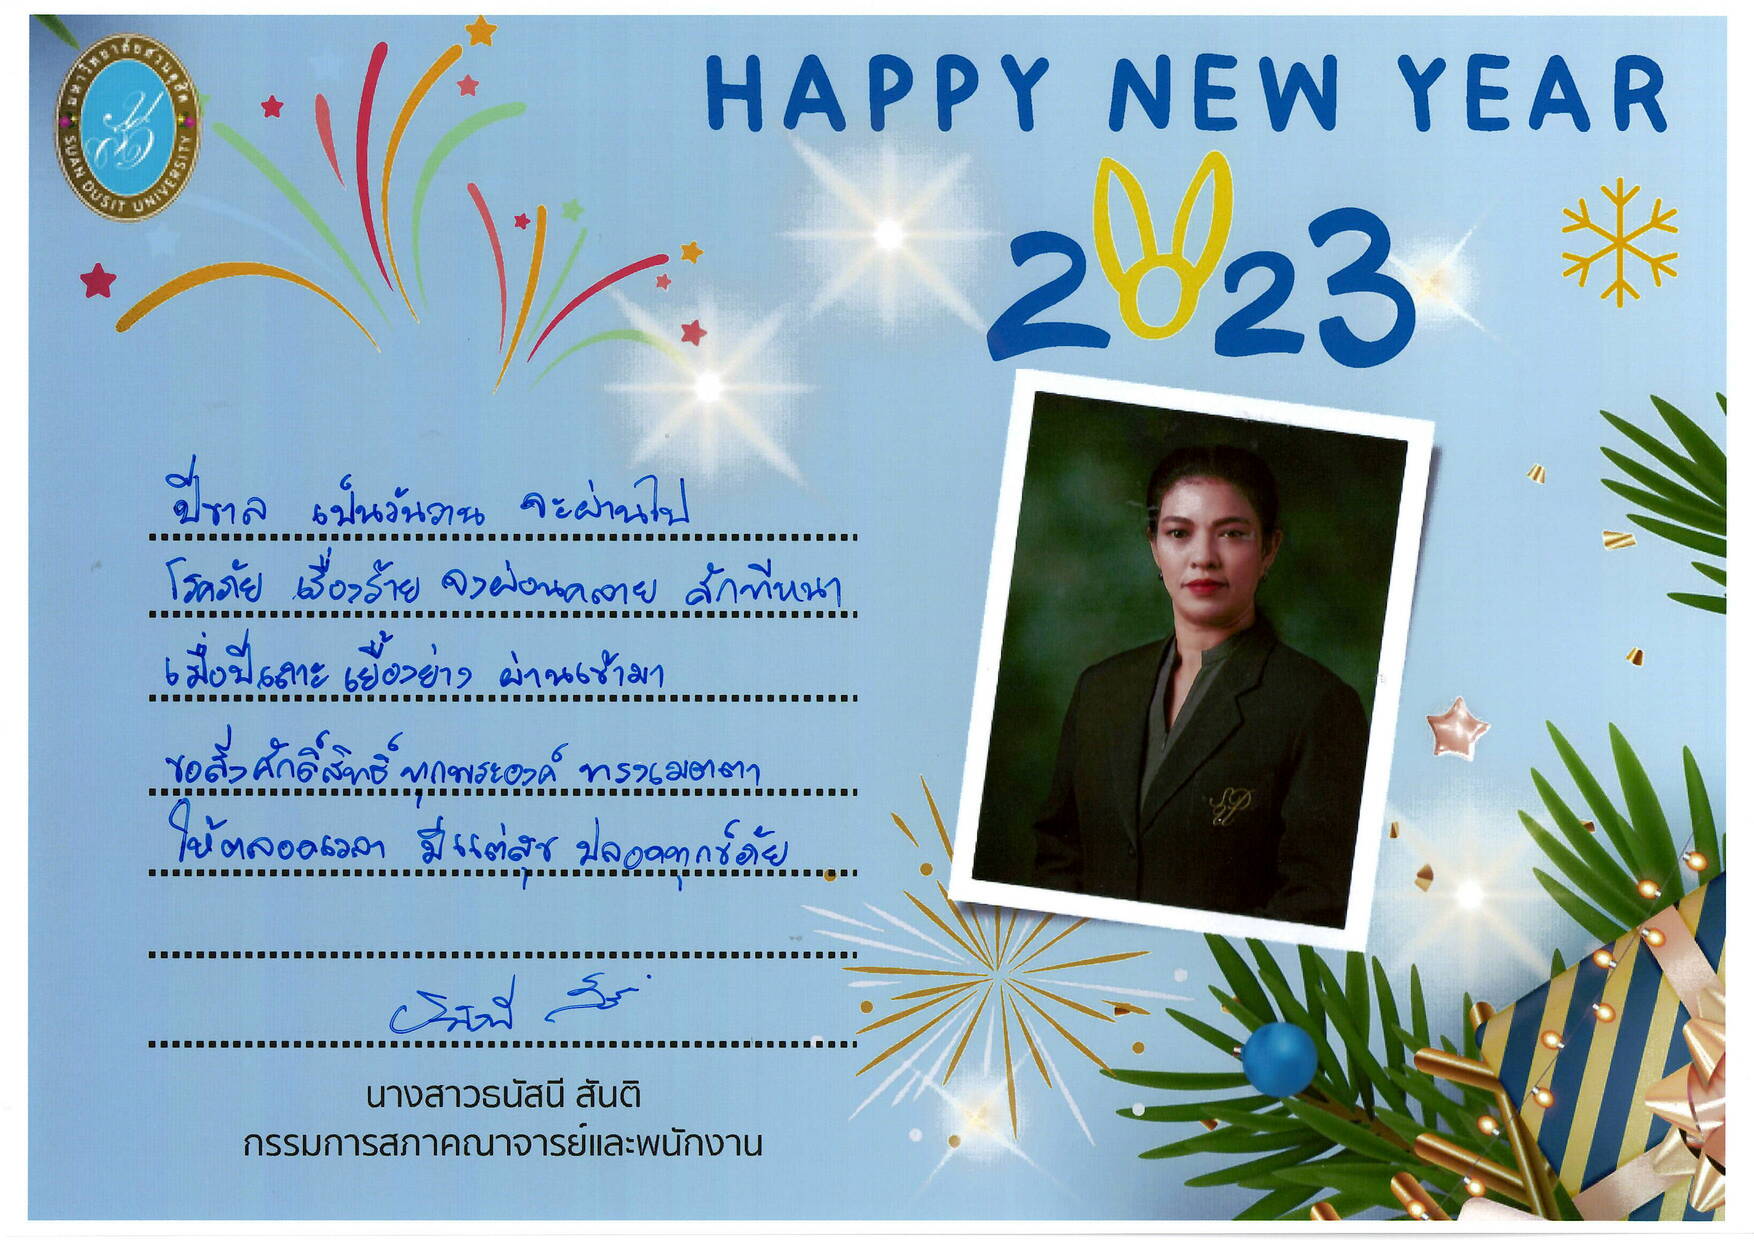 มหาวิทยาลัยสวนดุสิต
SUAN DUSIT UNIVERSITY
HAPPY NEW YEAR
2023
ปีขาล เป็นวันวาน จะผ่านไป
โรคภัย เรื่องร้าย จงผ่อนคลาย สักทีหนา
เมื่อปีเถาะ เยื้องย่าง ผ่านเข้ามา
ขอสิ่งศักดิ์สิทธิ์ ทุกพระองค์ ทรงเมตตา
ให้ตลอดเวลา มีแต่สุข ปลอดทุกข์ภัย
นางสาวธนัสนี สันติ
กรรมการสภาคณาจารย์และพนักงาน